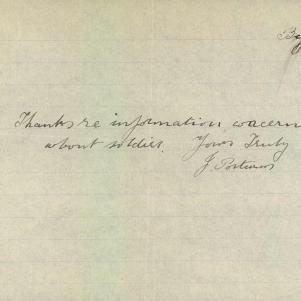 Thanks re information concern
about soldier. Yours Truly
J